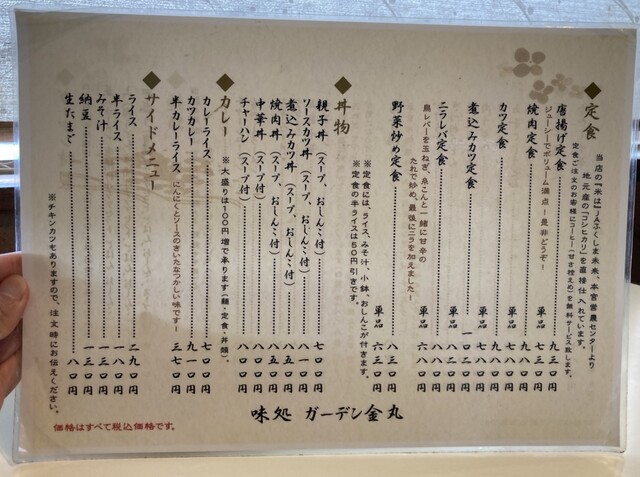 ◆定食
当店の『米は』JAふくしま未来、本宮営農センターより
地元産の「コシヒカリ」を直接仕入れています。
定食ご注文のお客様にコーヒー(甘さ控えめ)を無料サービス致します。
唐揚げ定食……九三〇円
ジューシーでボリューム満点ー是非どうぞー
単品 七三〇円
焼肉定食……九八〇円
単品 七八〇円
カツ定食……九八〇円
単品 七八〇円
煮込みカツ定食……一〇二〇円
単品 八二〇円
ニラレバ定食……八八〇円
鳥レバーを玉ねぎ、糸こんと一緒に甘辛の
たれで炒め、最後にニラを加えましたー
単品 六八〇円
野菜炒め定食……八三〇円
単品 六三〇円
※定食には、ライス、みそ汁、小鉢、おしんこが付きます。
※定食の半ライスは50円引きです。
◆丼物
親子丼(スープ、おしんこ付)……七四〇円
ソースカツ丼(スープ、おしんこ付)……八一〇円
煮込みカツ丼(スープ、おしんこ付)……八五〇円
焼肉丼(スープ、おしんこ付)……八五〇円
中華丼(スープ付)……八〇〇円
チャーハン(スープ付)……八〇〇円
◆カレー
※大盛りは100円増で承ります(麺・定食・丼類)。
カレーライス……七四〇円
カツカレー……九一〇円
半カレーライス…三七〇円
にんにくとソースのきいたなつかしい味ですー
◆サイドメニュー
ライス……二九〇円
半ライス……一八〇円
みそ汁……一三〇円
納豆……一三〇円
生たまご……八〇円
※チキンカツもありますので、注文時にお伝えください。
味処 ガーデン金丸
価格はすべて税込価格です。